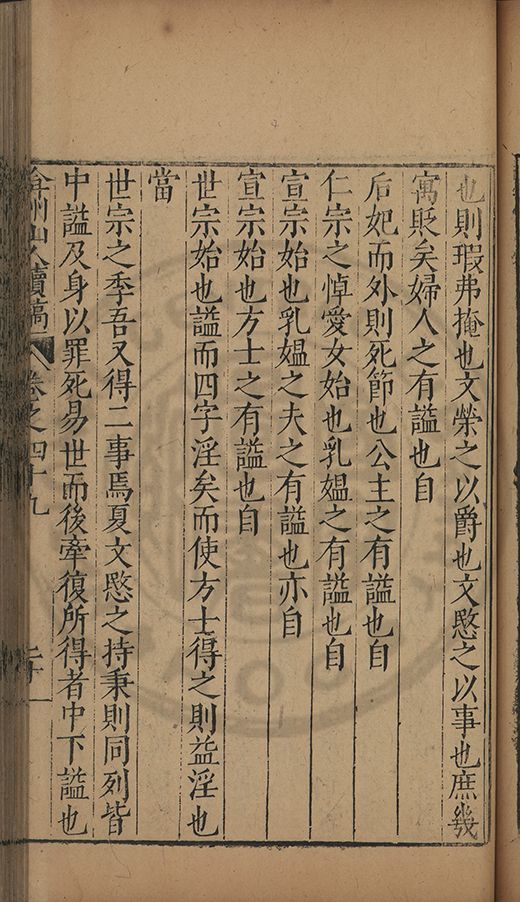 也則瑕弗掩也文榮之以爵也文愍之以事也庶幾
寓貶矣婦人之有謚也自
后妃而外則死節也公主之有謚也自
仁宗之悼愛女始也乳媪之有謚也自
宣宗始也乳媪之夫之有謚也亦自
宣宗始也方士之有謚也自
世宗始也謚而四字淫矣而使方士得之則益淫也
當
世宗之季吾又得二事焉夏文愍之持秉則同列皆
中謚及身以罪死易世而後牽復所得者中下謚也
弇州山人續稿 卷之四十九 二十一